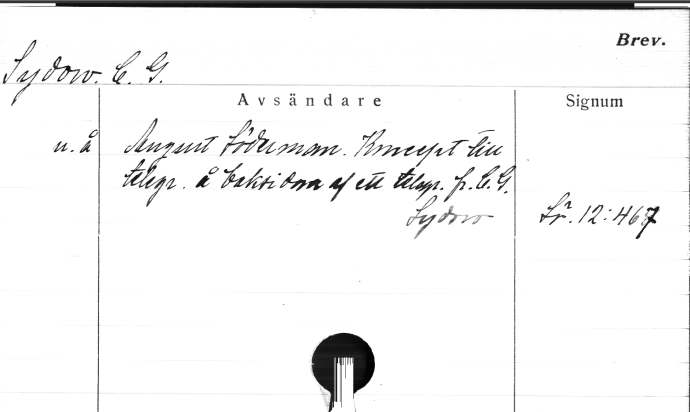 Brev.
Sydow. C. G.
Avsändare
Signum
u. å August Söderman. Koncept till
telegr. å baksidan af ett telegr. fr. C. G.
Sydow
12:467